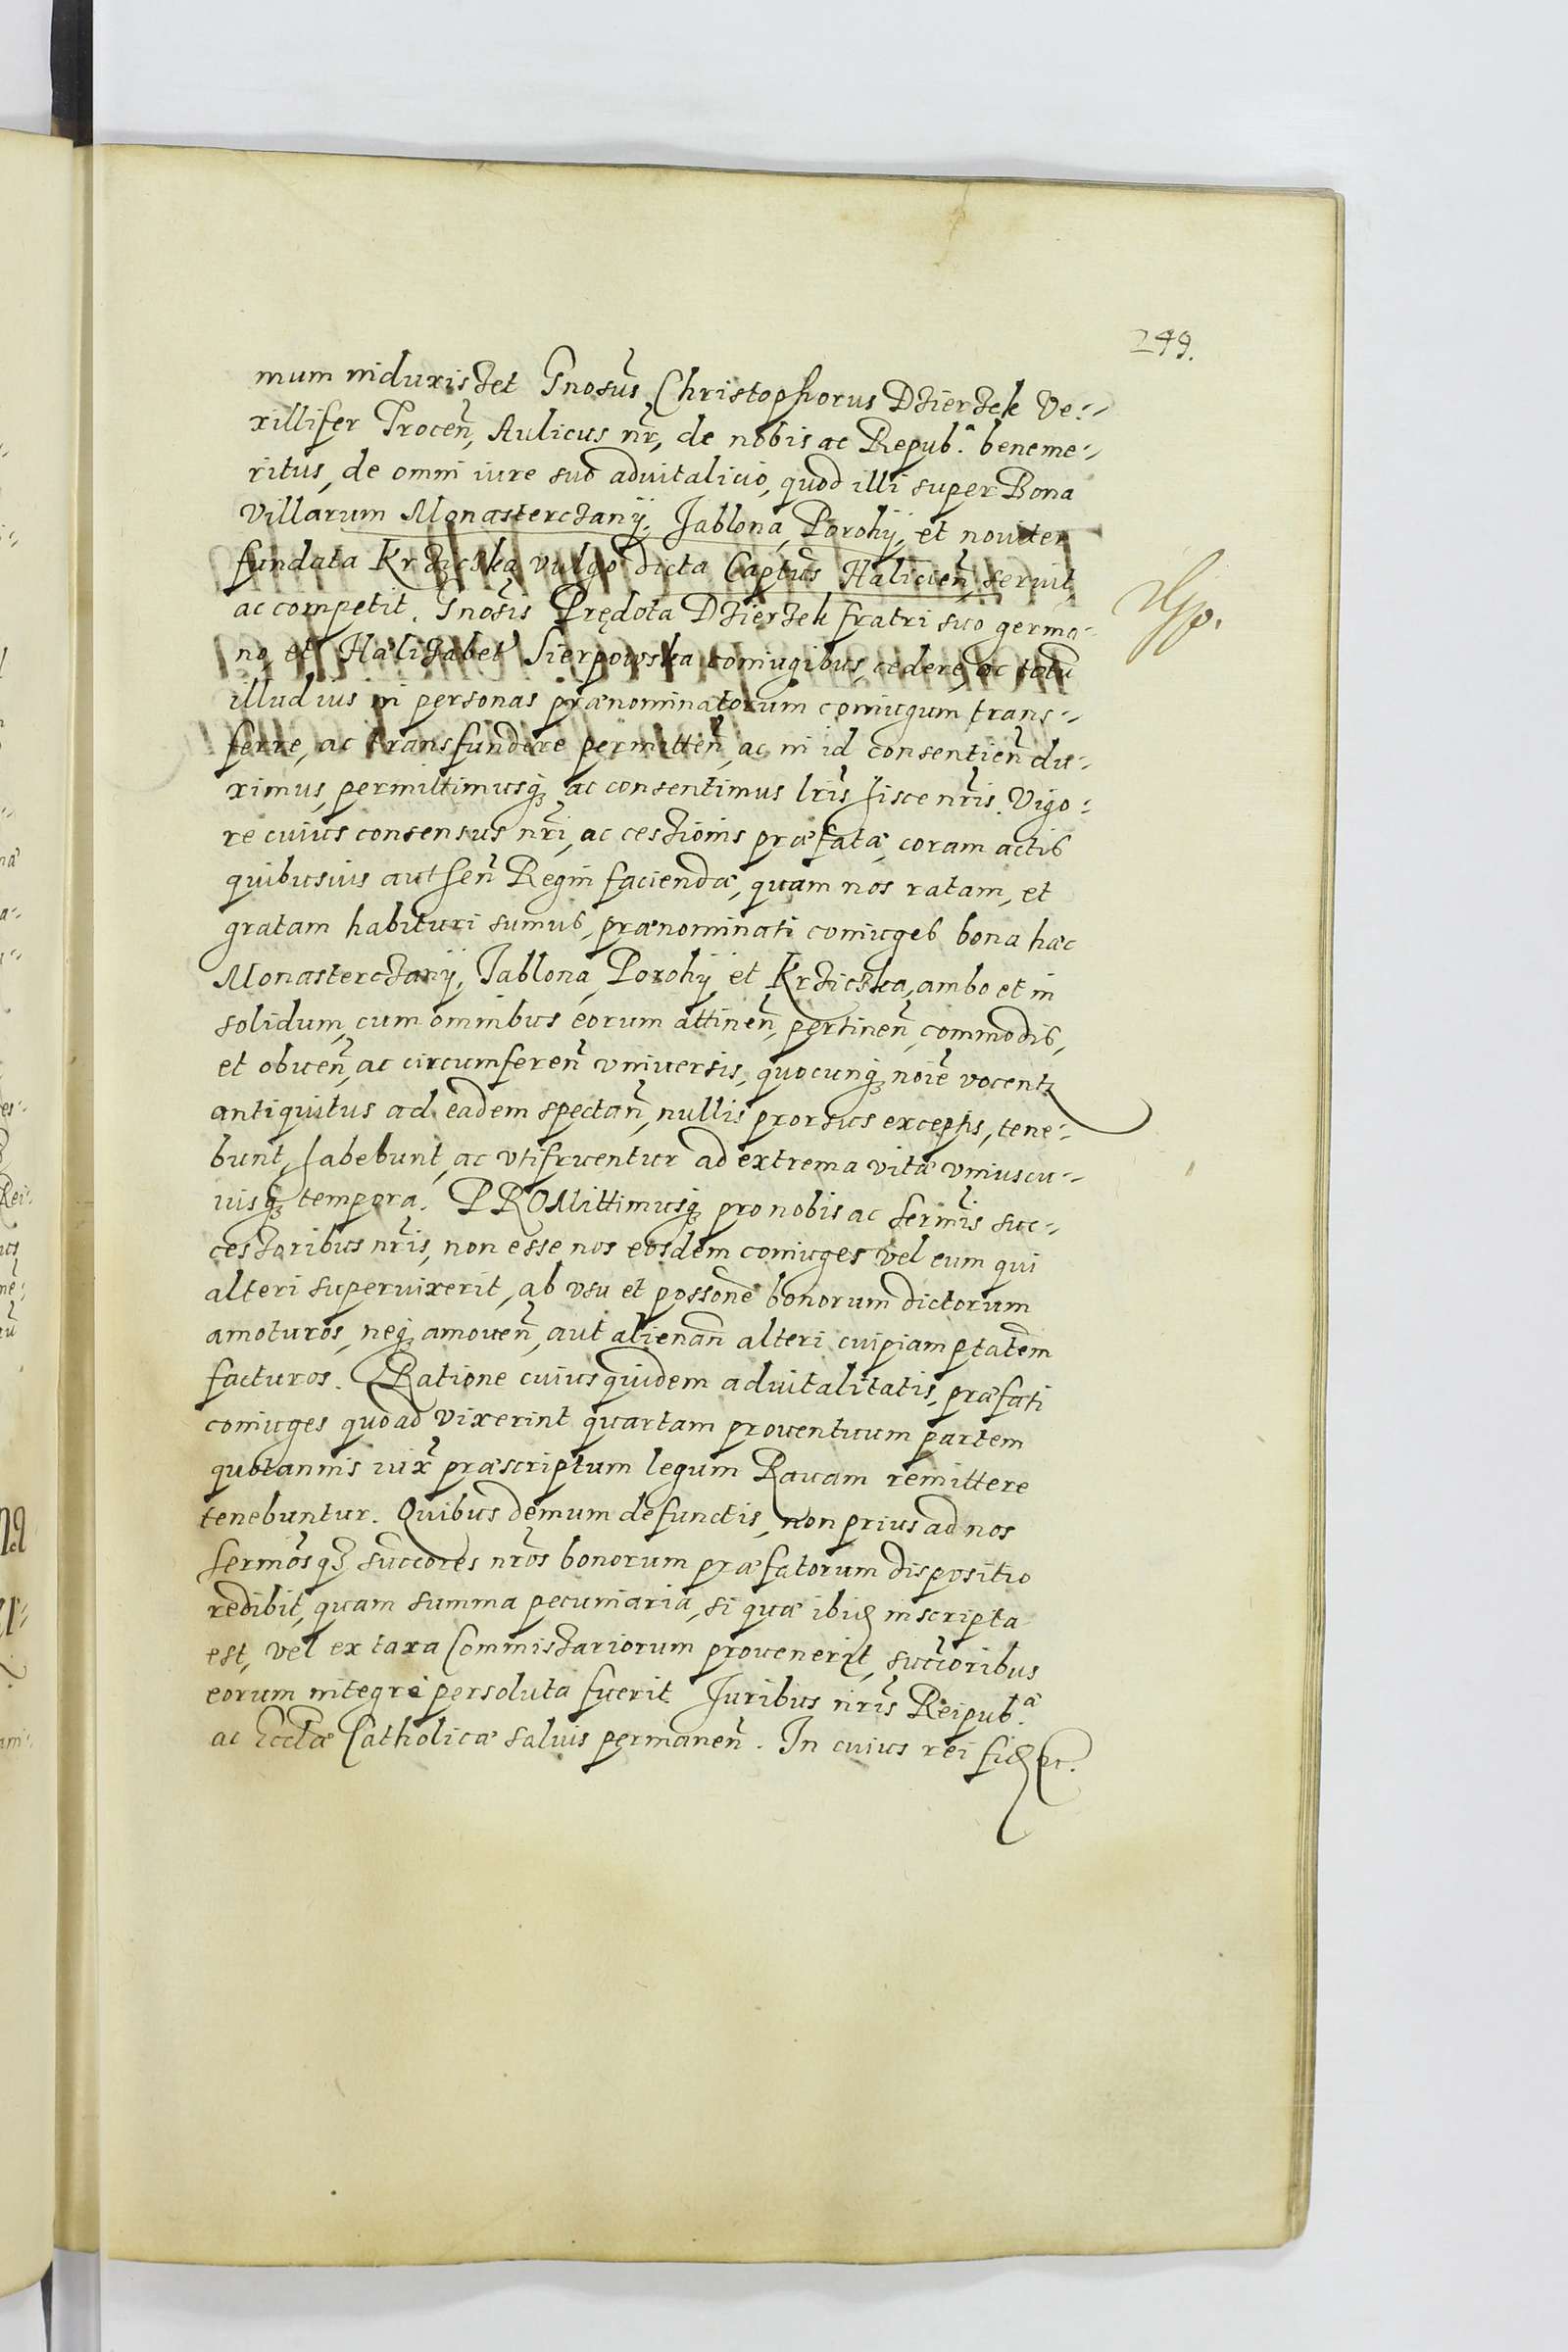 249.
mum induxisset Gnosus Christophorus Dzierzek Ve-
xillifer Trocen, Aulicus nr, de nobis ac Repub.a beneme-
ritus, de omni iure suo aduitalicio, quod illi super Bona
Villarum Monasterczany, Jablona, Porohy, et nouiter
fundata Krziczka vulgo dicta Captus Halicien seruit,
ac competit, Gnosis Prędota Dzierzek fratri suo germa-
no, et Halizabet Sierpowska coniugibus, cedere, ac totu
illud ius in personas prænominatorum coniugum trans-
ferre, ac transfundere permitten, ac in id consentien du-
ximus, permittimusq ac consentimus lris hisce nris. Vigo-
re cuius consensus nri, ac cessionis præfatæ, coram actis
quibusuis authen Regni faciendæ, quam nos ratam, et
gratam habituri sumus, prænominati coniuges bona hæc
Monasterczany, Jablona, Porohy et Krziczka, ambo et in
solidum, cum omnibus eorum attinen, pertinen, commodis,
et obuen, ac circumferen vniuersis, quocunq noie vocent
antiquitus ad eadem spectan, nullis prorsus exceptis, tene-
bunt, habebunt, ac vtifruentur ad extrema vitæ vniuscu-
iusq tempora. PROMittimusq pro nobis ac Sermis suc-
cessoribus nris, non esse nos eosdem coniuges vel eum qui
alteri superuixerit, ab vsu et possone bonorum dictorum
amoturos, neq amouen, aut alienan alteri cuipiam ptatem
facturos. Ratione cuius quidem aduitalitatis, præfati
coniuges quoad vixerint quartam prouentuum partem
quotannis iux præscriptum legum Rauam remittere
tenebuntur. Quibus demum defunctis, non prius ad nos
Sermosq succores nros bonorum præfatorum dispositio
redibit, quam summa pecuniaria, si quæ ibid inscripta
est, vel ex taxa Commissariorum prouenerit, succoribus
eorum integre persoluta fuerit. Juribus nris Reipub.a
ac Ecclæ Catholicæ saluis permanen. In cuius rei fid etc.